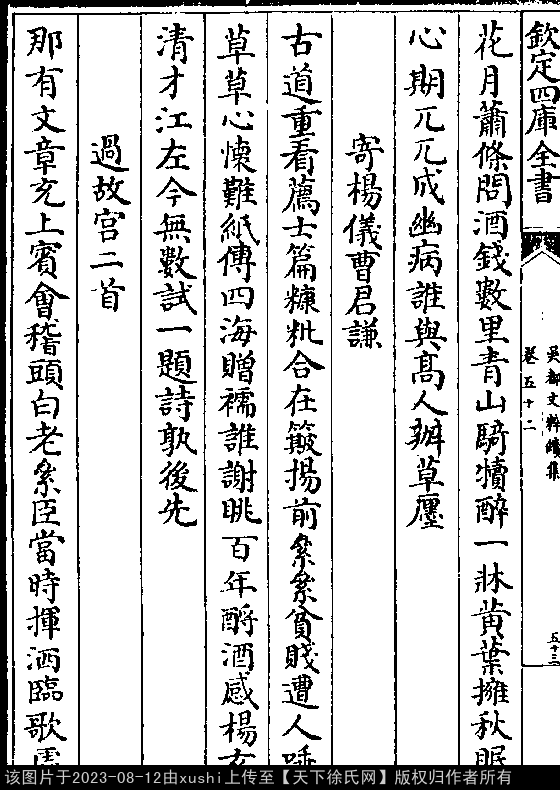 欽定四庫全書
吳都文粹續集
卷五十二
五十三
花月蕭條問酒錢數里青山騎犢醉一牀黄葉擁秋眠
心期兀兀成幽病誰與髙人辦草廛
寄楊儀曹君謙
古道重看薦士篇糠粃合在簸揚前纍纍貧賤遭人唾
草草心懐難紙傳四海贈襦誰謝眺百年酹酒感楊
清才江左今無數試一題詩孰後先
過故宫二首
那有文章充上賓會稽頭白老纍臣當時揮洒臨歌
该图片于2023-08-12由xushi上传至【天下徐氏网】版权归作者所有